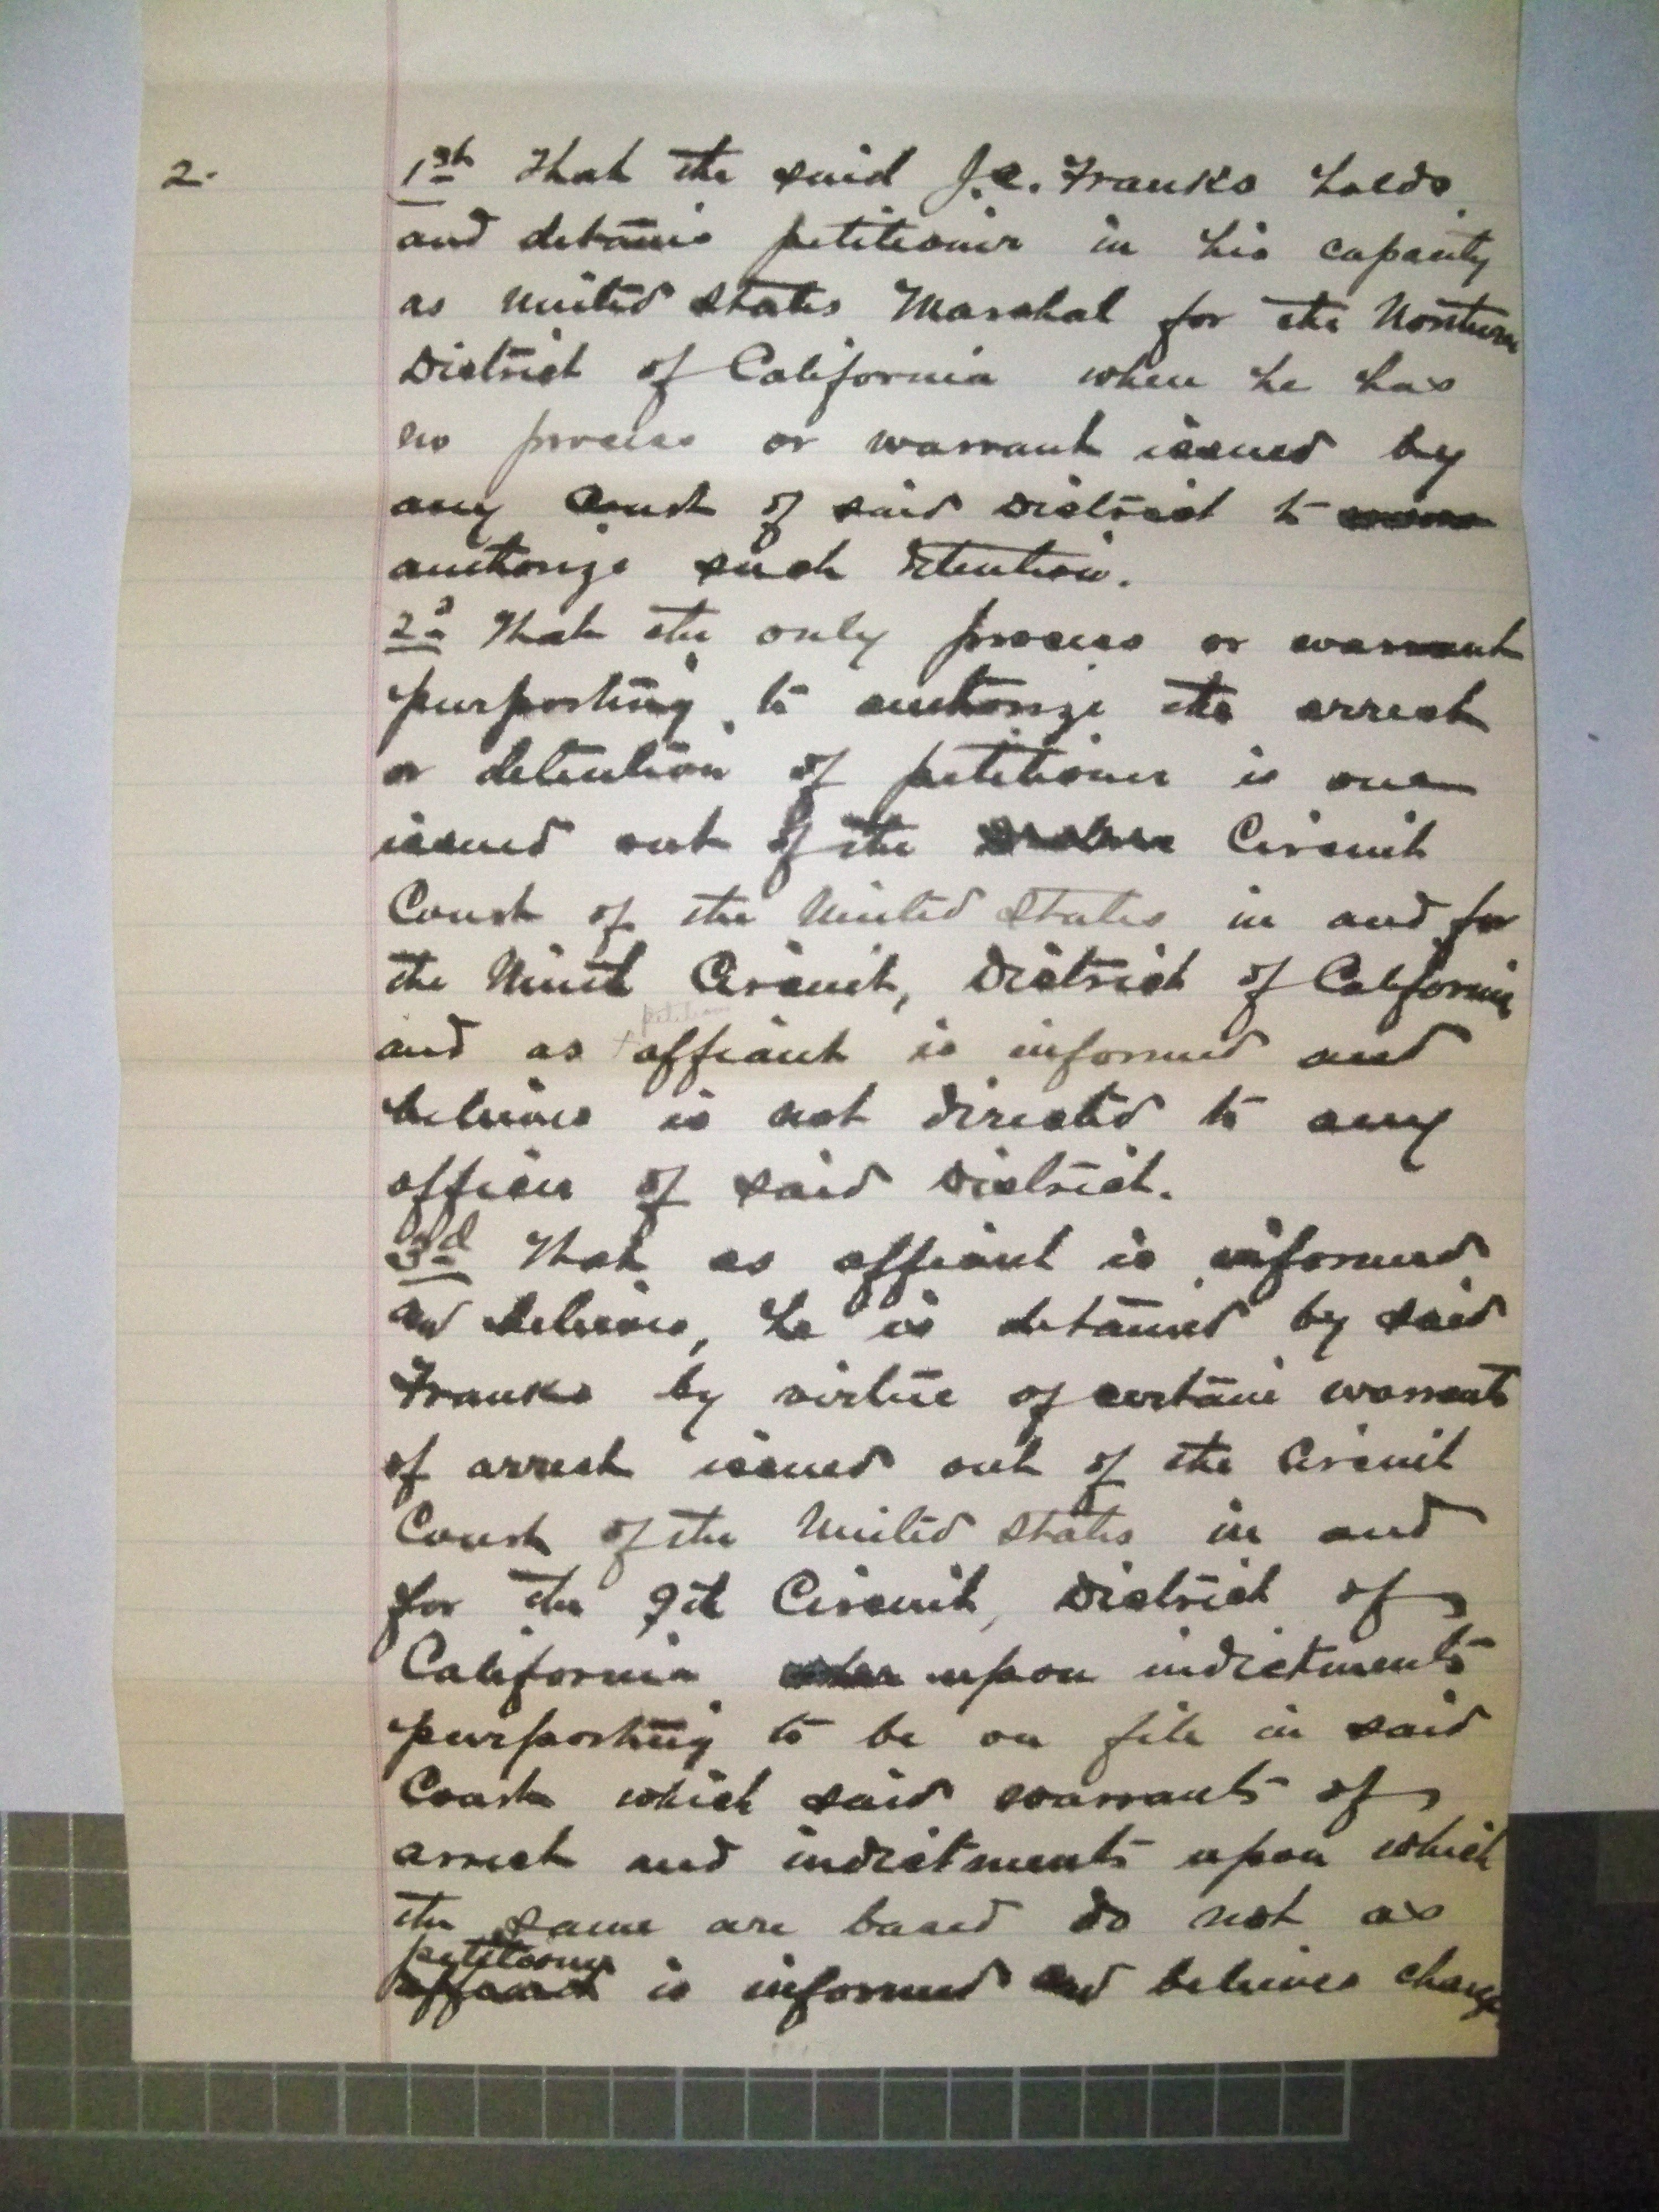 2.
1st That the said J.C. Franks holds
and detains petitioner in his capacity
as United States Marshal for the Northern
District of California when he has
no process or warrant issued by
any Court of said District to
authorize such detention.
2d That the only process or warrant
purporting to authorize the arrest
or detention of petitioner is one
issued out of the Circuit
Court of the United States in and for
the Ninth Circuit, District of California
petitioner
and as affiant is informed and
believes is not directed to any
officer of said District.
3d That as affiant is informed
and believes, he is detained by said
Franks by virtue of certain warrants
of arrest issued out of the Circuit
Court of the United States in and
for the 9th Circuit, District of
California upon indictments
purporting to be on file in said
Court which said warrants of
arrest and indictments upon which
the same are based do not as
petitioner
affiant is informed and believes charge